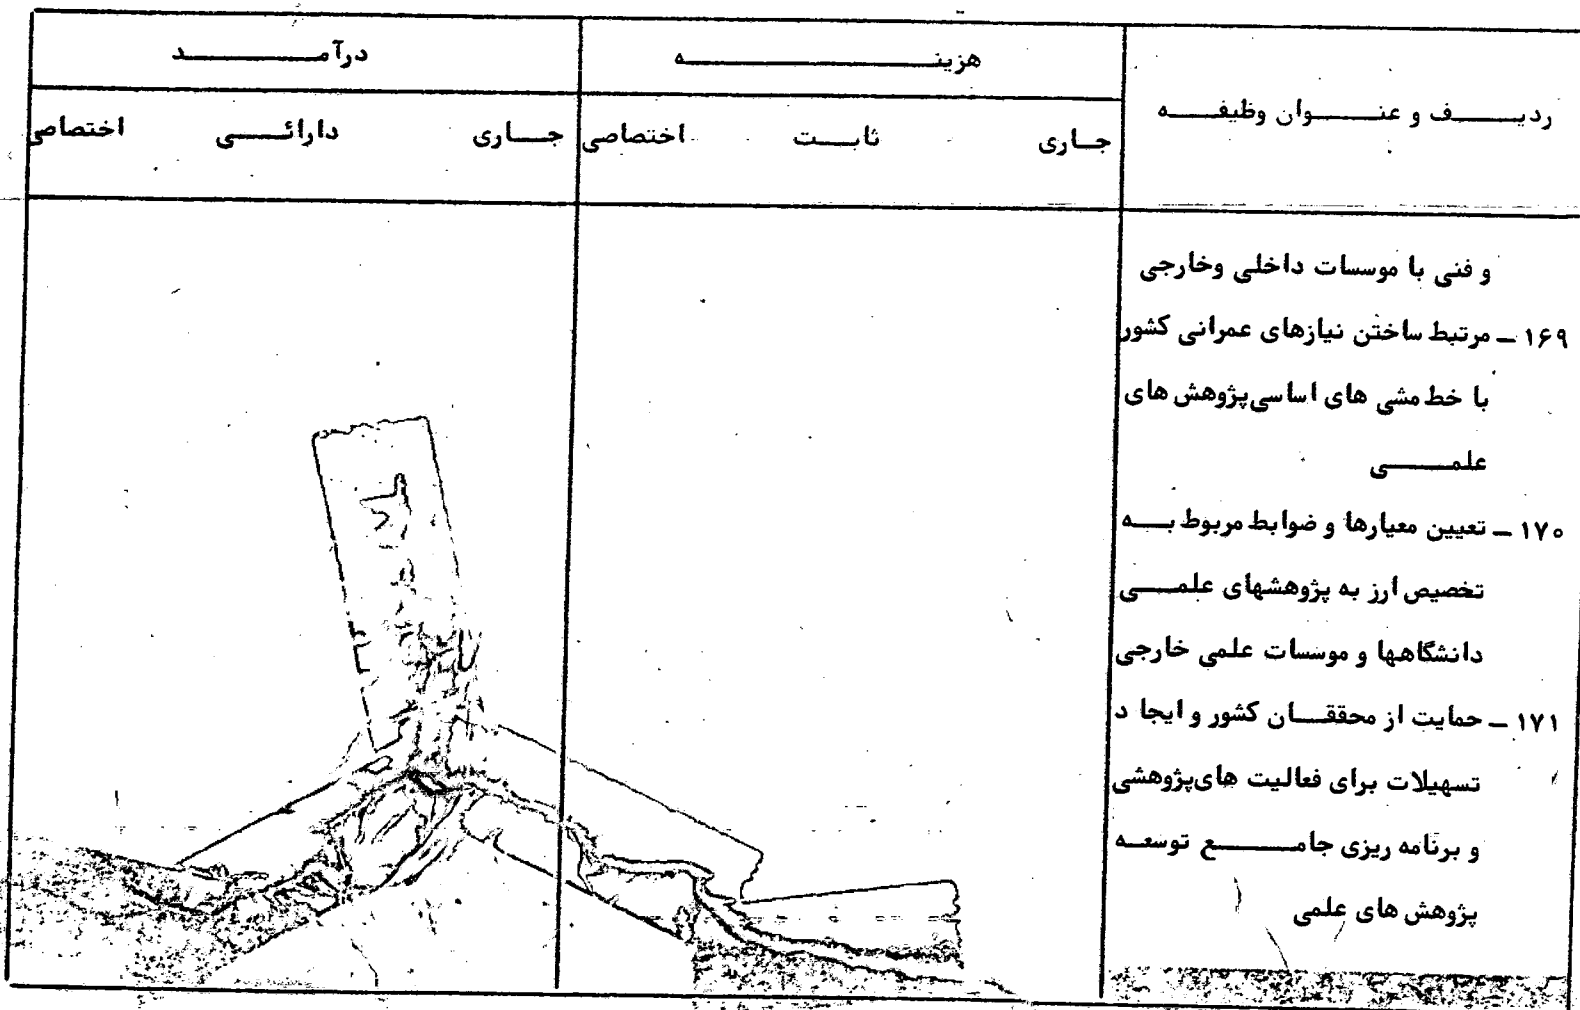 ردیف و عنوان وظیفه
هزینه
درآمد
جاری ثابت اختصاصی
جاری دارائی اختصاصی
و فنی با موسسات داخلی وخارجی
۱۶۹ – مرتبط ساختن نیازهای عمرانی کشور
با خط مشی های اساسی پژوهش های
علمی
۱۷۰ – تعیین معیارها و ضوابط مربوط به
تخصیص ارز به پژوهشهای علمی
دانشگاهها و موسسات علمی خارجی
۱۷۱ – حمایت از محققان کشور و ایجا د
تسهیلات برای فعالیت های پژوهشی
و برنامه ریزی جامع توسعه
پژوهش های علمی